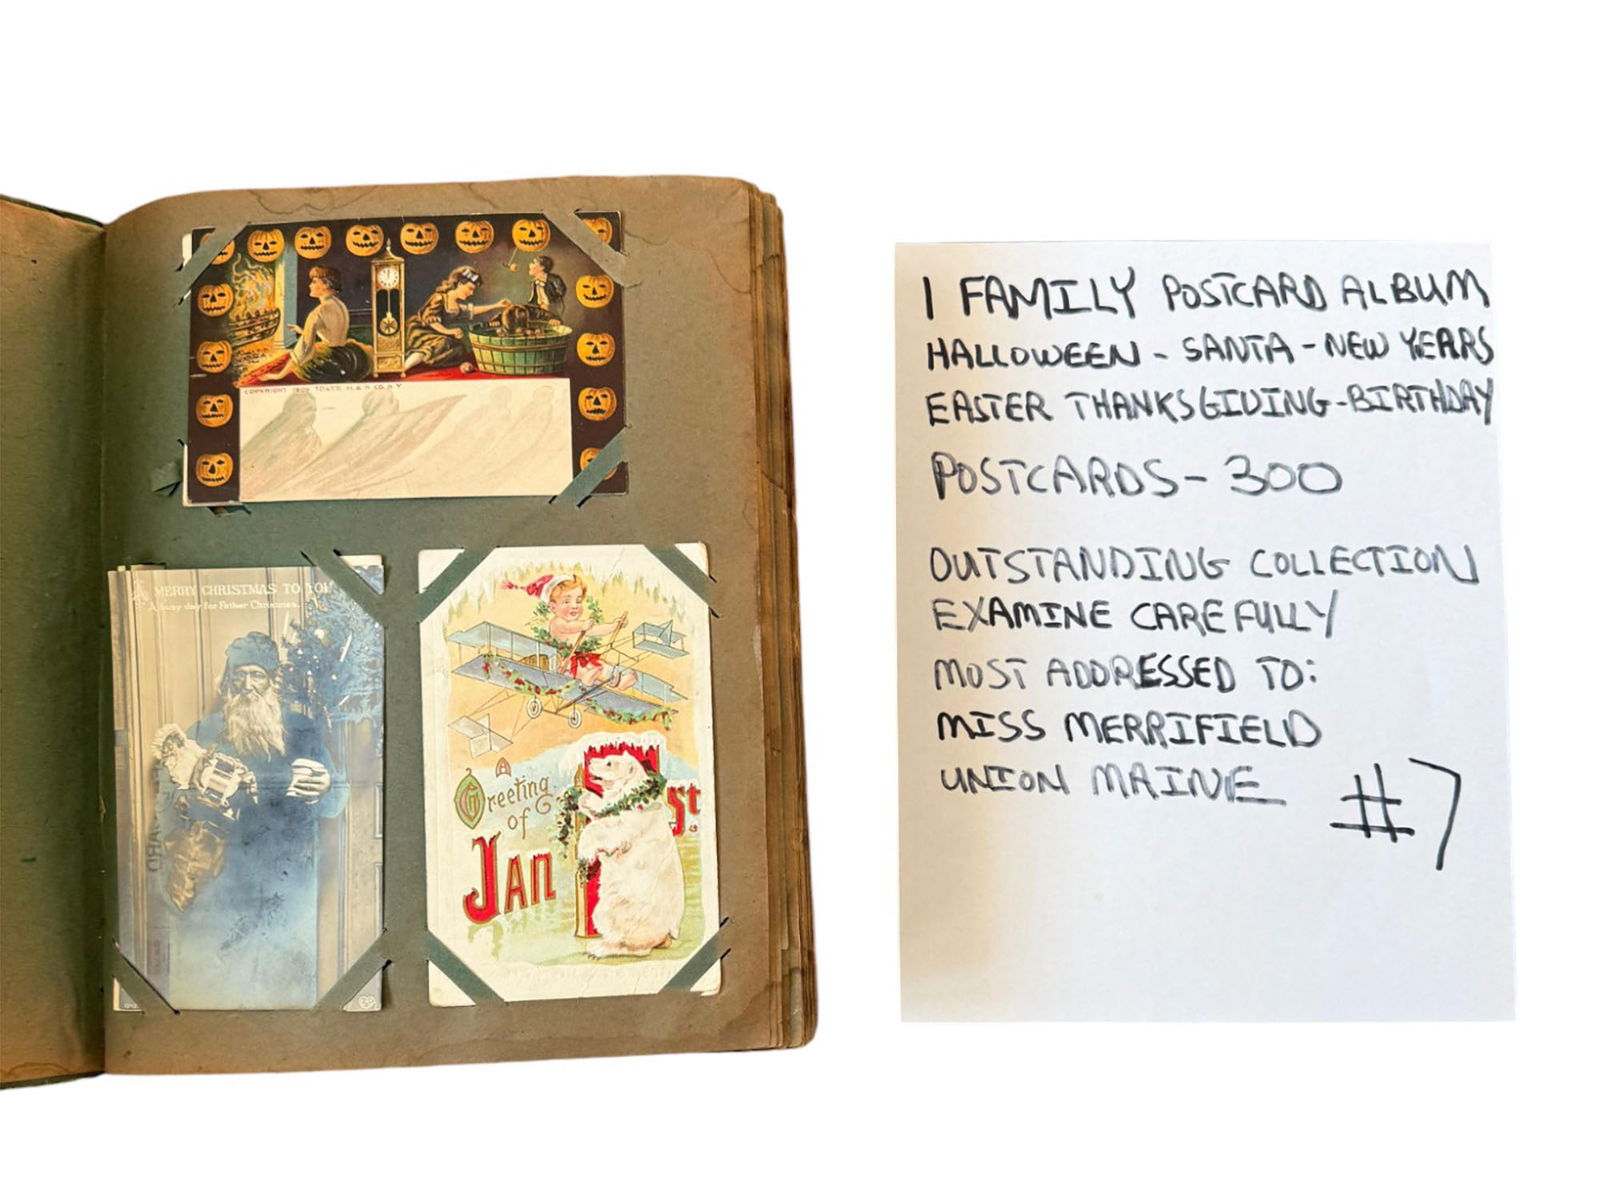 COPYRIGHT 1909
A MERRY CHRISTMAS TO YOU
A busy day for Father Christmas.
A
Greeting
of
Jan 1st
1 FAMILY POSTCARD ALBUM
HALLOWEEN - SANTA - NEW YEARS
EASTER THANKSGIVING - BIRTHDAY
POSTCARDS - 300
OUTSTANDING COLLECTION
EXAMINE CAREFULLY
MOST ADDRESSED TO:
MISS MERRIFIELD
UNION MAINE
#7